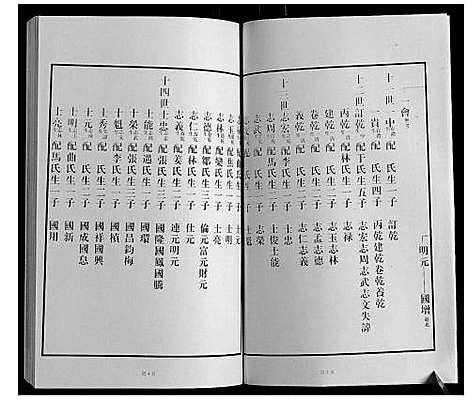 明元——國增
會
十一世
一忠 配 氏生一子 訂乾
一貴 配 氏生四子 丙乾建乾卷乾義乾
十二世訂乾 配于氏生五子 志宏志周志武志文失諱
丙乾 配林氏生一子 志祿
建乾 配 氏生二子 志玉志林
卷乾 配 氏生二子 志孟志德
義乾 配 氏生二子 志仁志義
十三世志宏 配李氏生一子 士忠
志周 配 氏生二子 士俊士能
志武 配 氏生一子 志榮
志玉 配焦氏生一子 士明
志林 配欒氏生一子 士亮
志德 配鄒氏生三子 倫元富元財元
志仁 配林氏生一子 仕元
志義 配姜氏生二子 連元明元
十四世士忠 配張氏生三子 國隆國鳳國騰
士能 配遇氏生一子 國環
士榮 配張氏生二子 國昌鈞梅
士魁 配李氏生一子 國楨
士秀 配 氏生二子 國祥國興
士元 配 氏生二子 國成國息
士明 配曲氏生一子 國新
士亮 配馬氏生一子 國用